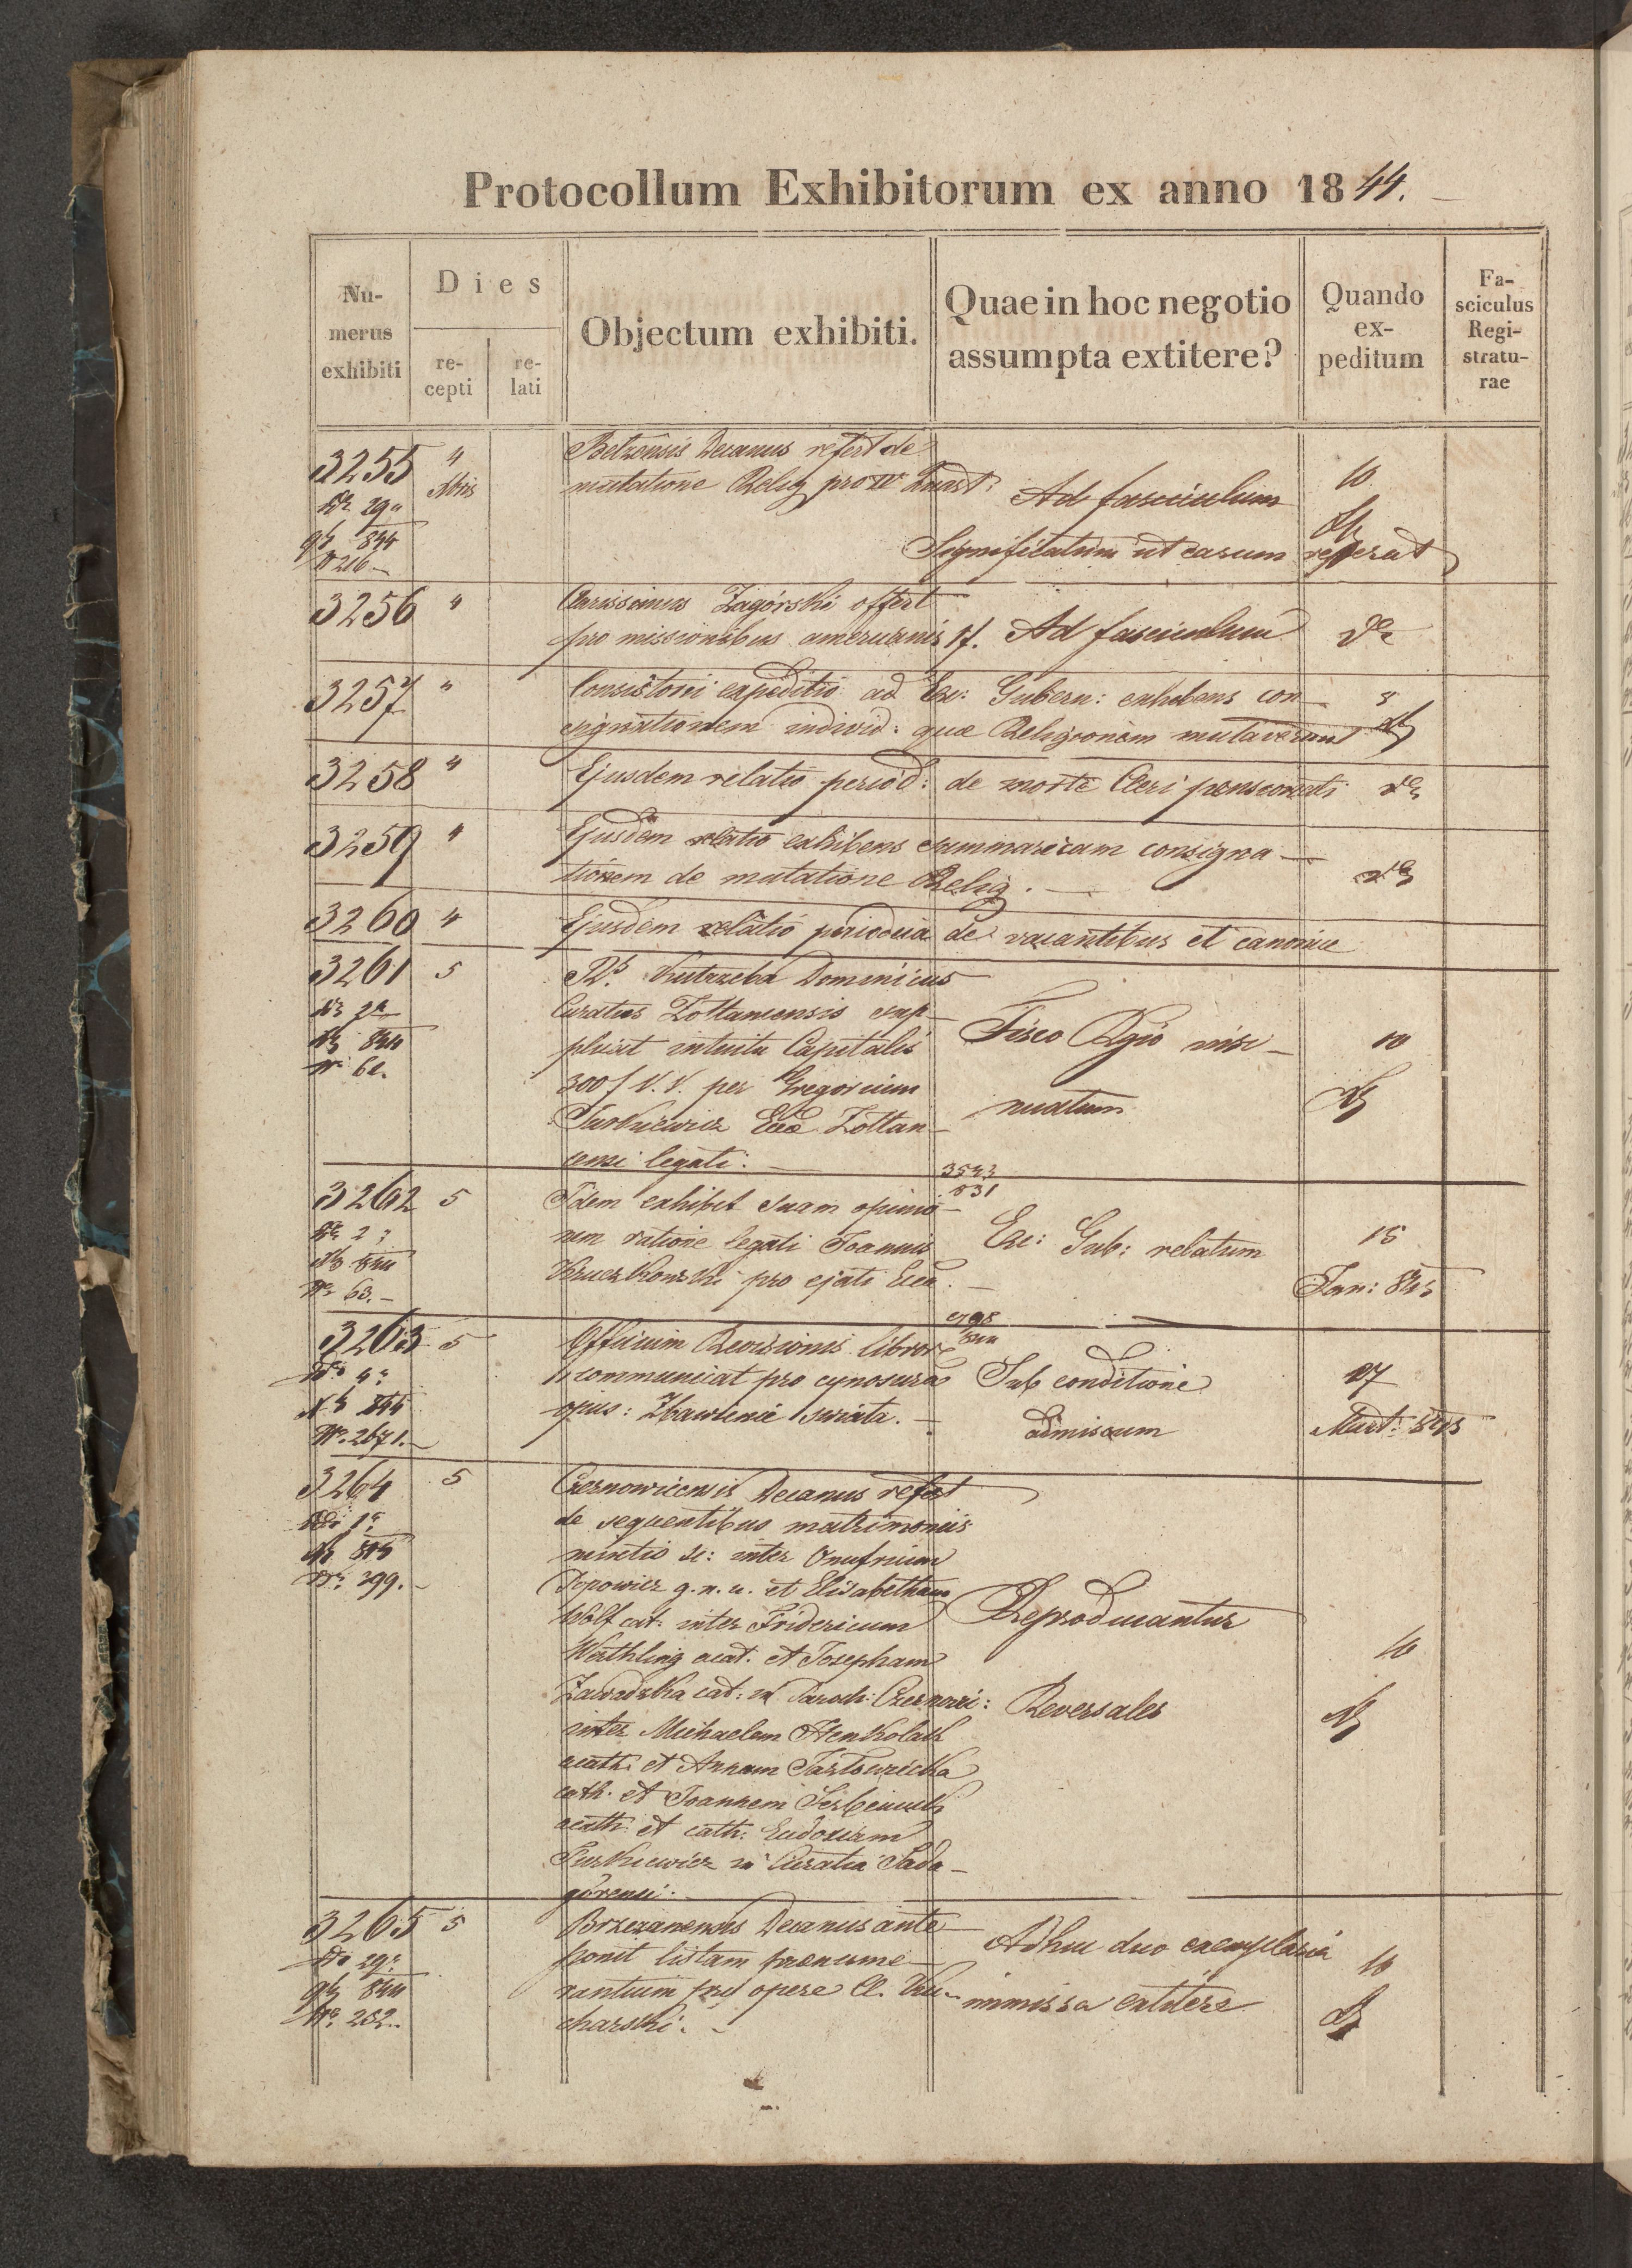 Protocollum Exhibitorum ex anno 1844.
Numerus exhibiti
Dies
recepti
relati
Objectum exhibiti.
Quae in hoc negotio assumpta extitere?
Quando expeditum
Fasciculus Registraturae
3255
4
Xbris
Belzensis Decanus refert de
mutatione Relig pro IV Quart:
Ad fasciculum
10
Significatum ut earum referat
Do 29a
9b 844
N 216
3256
4
Clarissimus Zagórski offert
pro missionibus americanis 1f.
Ad fasciculum
3257
"
Consistorii expeditio ad Exc: Gubern: exhibens con-
signationem individ: quae Religionem mutaverunt
3258
4
Ejusdem relatio period: de morte Cleri pensionati
3259
4
Ejusdem relatio exhibens summaricam consigna-
tionem de mutatione Relig.
3260
4
Ejusdem relatio periodica de vacantibus et canonice
3261
5
Kutrzeba Dominicus
Curatus Zoltancensis sup-
plicat intuitu Capitalis
300 f V. V. per Gregorium
Turkiewicz Eccae Zoltan-
censi legati.
Fisco Rgio insi-
nuatum
10
Xb 844
N 62.
3262
5
Idem exhibet suam opinio-
nem ratione legati Joannis
Kruczkowski pro ejati Ecca.
Exc: Gub: relatum
15
Jan: 845
Xb 844
No 63.
3263
5
Officium Revisionis libror
communicat pro cynosura
opus: Zbawienie świata.
Sub conditione
admissum
27
Mart: 845
Xb 844
No. 2671.
3264
5
Czernowicensis Decanus refert
de sequentibus matrimoniis
mixtis sc: inter Onufrium
Popowicz g. n. u. et Elisabetham
Wolf cat: inter Fridericum
Werthling acat. et Josepham
Zawadzka cat: in Paroch: Czernovi:
inter Michaelem
acath: et Annam
cath. et Joannem
acath: et cath: Eudoxiam
Turkiewicz in Curatia Sada-
górensi.
Reproducantur
Reversales
10
No. 399.
3265
5
Brzezanensis Decanus ante
ponit listam praenume-
rantium pro opere Cl. Ku-
charski.
Adhuc duo exemplaria
immissa extitere
10
Do 29a
9b 844
No. 282.